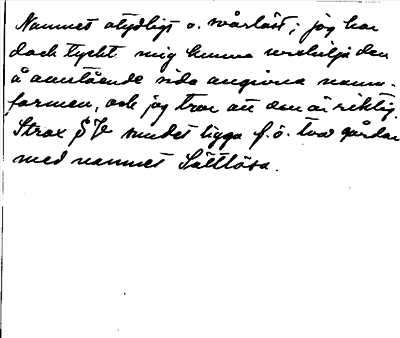 Namnet otydligt o. svårläst; jag har
dock tyckt mig kunna urskilja den
å omstående sida angivna namn-
formen, och jag tror att den är riktig.
Strax SV om det ligga f.ö. två gårdar
med namnet Sättlösa.